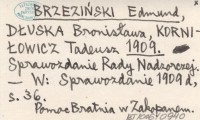 BRZEZIŃSKI Edmund,
DŁUSKA Bronisława, KORNI-
ŁOWICZ Tadeusz 1909.
Sprawozdanie Rady Nadzorczej.
— W: Sprawozdanie 1909 d,
s. 36.
Pomoc Bratnia w Zakopanem.